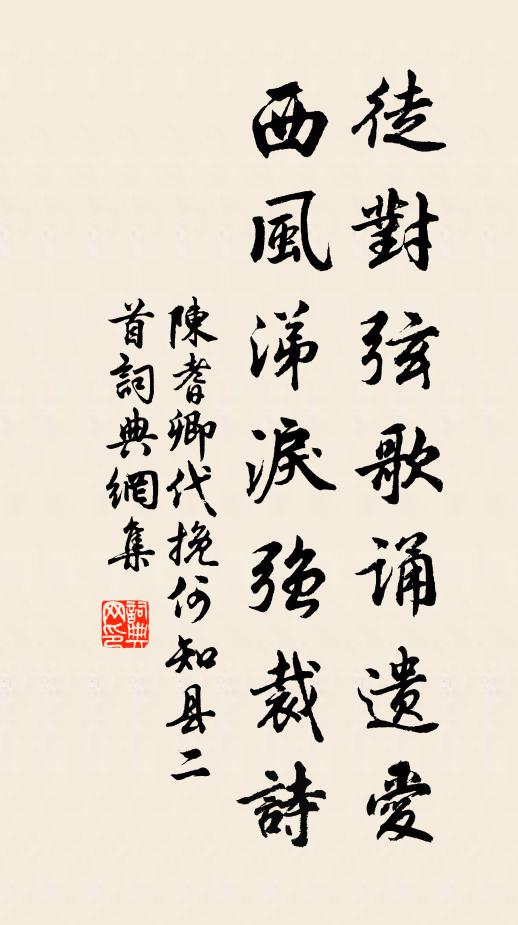 徒對弦歌誦遺愛
西風涕淚強裁詩
陳耆卿代挽何知县二
首詞典網集
詞典网印